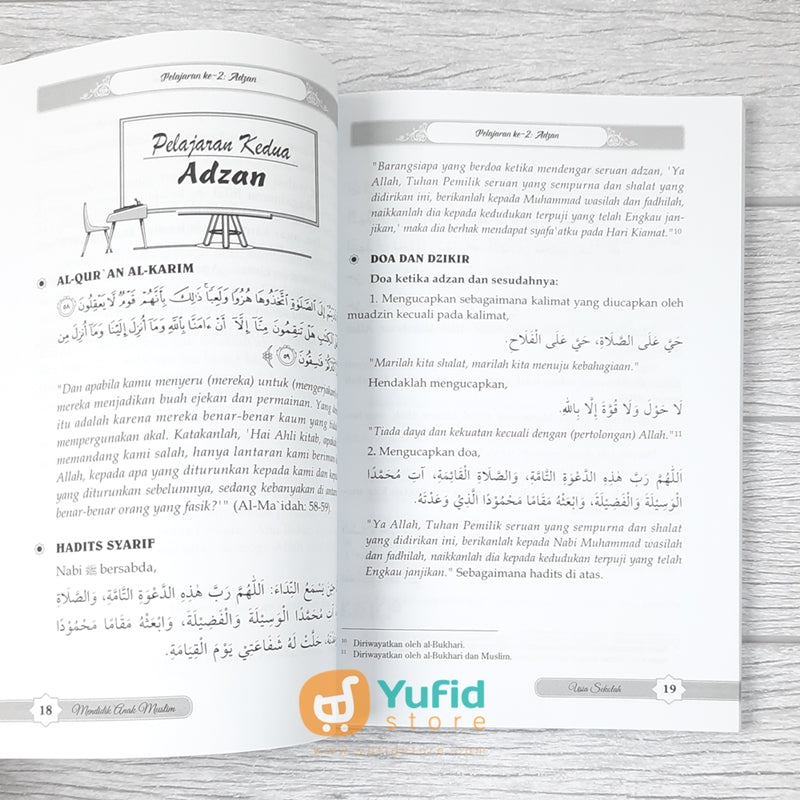 Pelajaran ke-2: Adzan
Pelajaran Kedua
Adzan
AL-QUR`AN AL-KARIM
إِلَى الصَّلَوٰةِ اتَّخَذُوهَا هُزُوًا وَلَعِبًا ۚ ذَٰلِكَ بِأَنَّهُمْ قَوْمٌ لَّا يَعْقِلُونَ ٥٨
هَلْ تَنقِمُونَ مِنَّآ إِلَّآ أَنْ ءَامَنَّا بِاللَّهِ وَمَآ أُنزِلَ إِلَيْنَا وَمَآ أُنزِلَ مِن
فَٰسِقُونَ ٥٩
"Dan apabila kamu menyeru (mereka) untuk (mengerjakan)
mereka menjadikan buah ejekan dan permainan. Yang
itu adalah karena mereka benar-benar kaum yang
mempergunakan akal. Katakanlah, 'Hai Ahli kitab,
memandang kami salah, hanya lantaran kami beriman
Allah, kepada apa yang diturunkan kepada kami dan
yang diturunkan sebelumnya, sedang kebanyakan di
benar-benar orang yang fasik?'" (Al-Ma`idah: 58-59).
HADITS SYARIF
Nabi ﷺ bersabda,
يَسْمَعُ النِّدَاءَ: اَللّٰهُمَّ رَبَّ هٰذِهِ الدَّعْوَةِ التَّامَّةِ، وَالصَّلَاةِ
مُحَمَّدًا الْوَسِيْلَةَ وَالْفَضِيْلَةَ، وَابْعَثْهُ مَقَامًا مَحْمُوْدًا
حَلَّتْ لَهُ شَفَاعَتِيْ يَوْمَ الْقِيَامَةِ.
18 Mendidik Anak Muslim
Pelajaran ke-2: Adzan
"Barangsiapa yang berdoa ketika mendengar seruan adzan, 'Ya
Allah, Tuhan Pemilik seruan yang sempurna dan shalat yang
didirikan ini, berikanlah kepada Muhammad wasilah dan fadhilah,
naikkanlah dia kepada kedudukan terpuji yang telah Engkau jan-
jikan,' maka dia berhak mendapat syafa'atku pada Hari Kiamat."10
DOA DAN DZIKIR
Doa ketika adzan dan sesudahnya:
1. Mengucapkan sebagaimana kalimat yang diucapkan oleh
muadzin kecuali pada kalimat,
حَيَّ عَلَى الصَّلَاةِ، حَيَّ عَلَى الْفَلَاحِ.
"Marilah kita shalat, marilah kita menuju kebahagiaan."
Hendaklah mengucapkan,
لَا حَوْلَ وَلَا قُوَّةَ إِلَّا بِاللّٰهِ.
"Tiada daya dan kekuatan kecuali dengan (pertolongan) Allah."11
2. Mengucapkan doa,
اَللّٰهُمَّ رَبَّ هٰذِهِ الدَّعْوَةِ التَّامَّةِ، وَالصَّلَاةِ الْقَائِمَةِ، آتِ مُحَمَّدًا
الْوَسِيْلَةَ وَالْفَضِيْلَةَ، وَابْعَثْهُ مَقَامًا مَحْمُوْدًا الَّذِيْ وَعَدْتَهُ.
"Ya Allah, Tuhan Pemilik seruan yang sempurna dan shalat
yang didirikan ini, berikanlah kepada Nabi Muhammad wasilah
dan fadhilah, naikkanlah dia kepada kedudukan terpuji yang telah
Engkau janjikan." Sebagaimana hadits di atas.
10 Diriwayatkan oleh al-Bukhari.
11 Diriwayatkan oleh al-Bukhari dan Muslim.
Usia Sekolah 19
Yufid
store
www.yufidstore.com